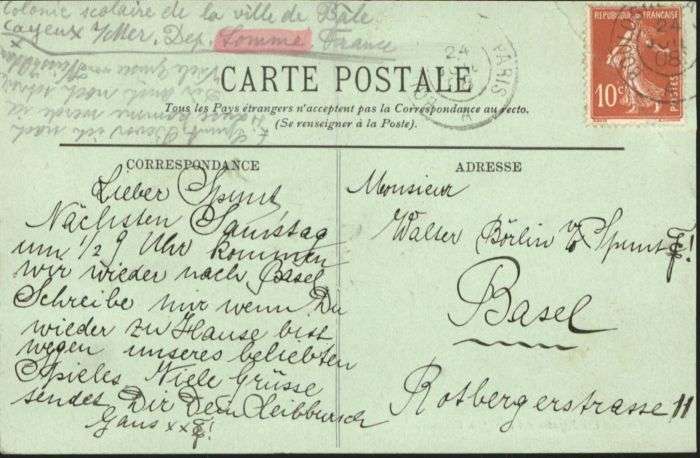 Colonie scolaire de la ville de Bâle.
Cayeux s/Mer. Dep. Somme France
CARTE POSTALE
Tous les Pays étrangers n'acceptent pas la Correspondance au recto.
(Se renseigner à la Poste).
RÉPUBLIQUE FRANÇAISE
10c
POSTES
PARIS
24
24
08
CORRESPONDANCE
Lieber Spunt
Nächsten Samstag
um 1/2 9 Uhr kommen
wir wieder nach Basel
Schreibe mir wenn Du
wieder zu Hause bist
wegen unseres beliebten
Spieles Viele Grüsse
sendet Dir Dein Leibbursch
Gans xx
ADRESSE
Monsieur
Walter Börlin v/o Spunt
Basel
Rotbergerstrasse 11